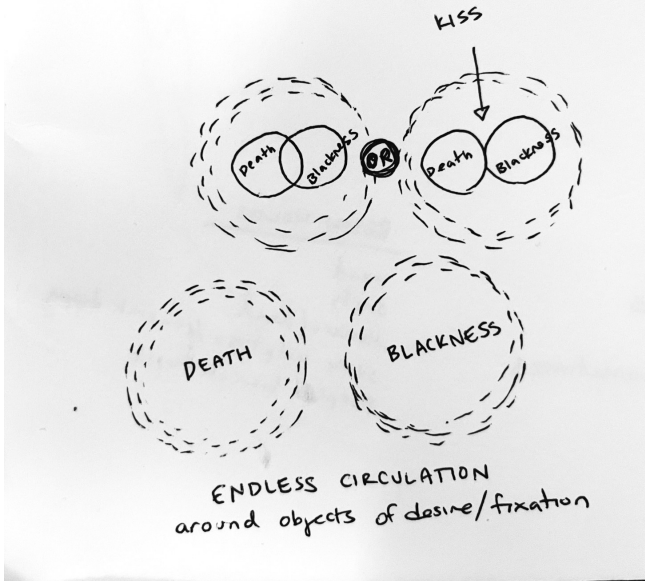 KISS
Death
Blackness
OR
Death
Blackness
DEATH
BLACKNESS
ENDLESS CIRCULATION
around objects of desire/fixation